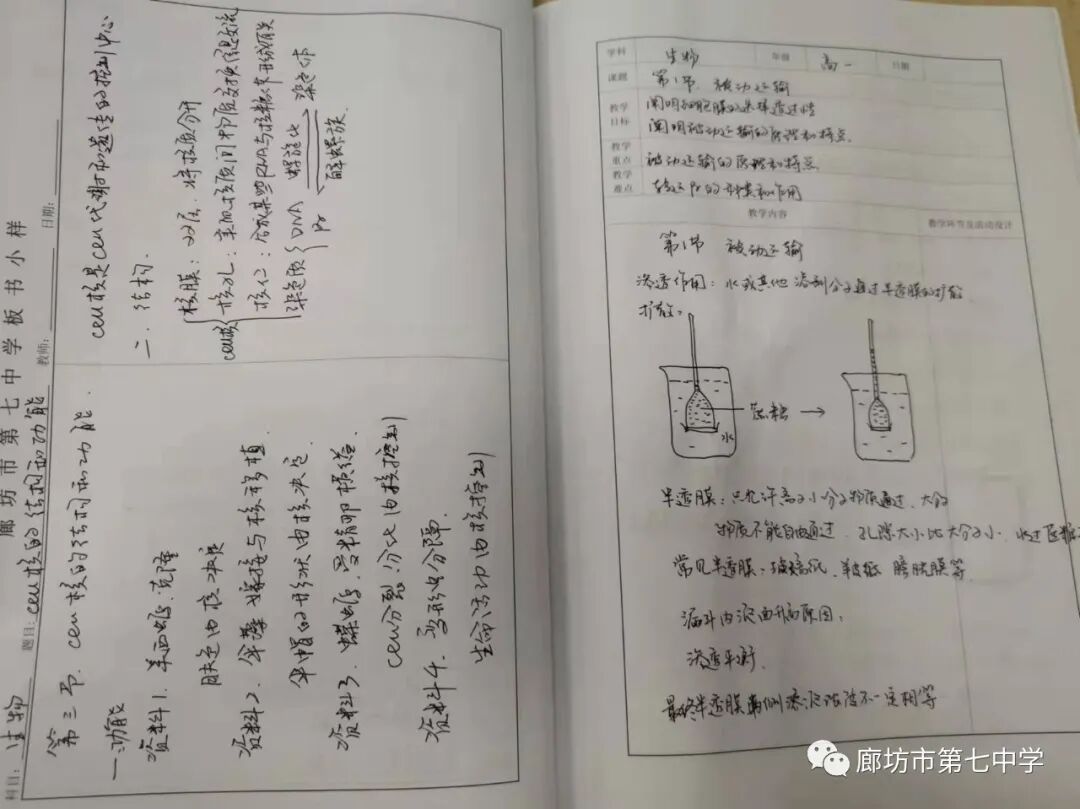 廊坊市第七中学板书小样
科目：生物 题目：cell核的结构和功能 教师： 日期：
第三节 cell核的结构和功能.
一.功能
资料1. 美西螈.克隆
肤色由核决定
资料2. 伞藻嫁接与核移植
伞帽的形状由核决定.
资料3. 蝾螈受精卵横缢.
cell分裂、分化由核控制
资料4. 变形虫分隔.
生命活动由核控制
cell核是cell代谢和遗传的控制中心
二.结构.
cell核
核膜：双层.将核质分开
核孔：实现核质间物质交换信息交流
核仁：合成某些RNA与核糖体形成有关
染色质 DNA Pr 螺旋化 解螺旋 染色体
学科 生物 年级 高一 日期
课题 第1节 被动运输
教学目标 阐明细胞膜的选择透过性
阐明被动运输的原理和特点.
教学重点 被动运输的原理和特点
教学难点 转运Pr的种类和作用
教学内容 教学环节及活动设计
第1节 被动运输
渗透作用：水或其他溶剂分子通过半透膜的扩散
扩散：
蔗糖
水
半透膜：只允许离子小分子物质通过.大分子
物质不能自由通过.孔隙大小比大分子小.
常见半透膜：玻璃纸.羊皮纸 膀胱膜等
漏斗内液面升高原因：
渗透平衡.
最终半透膜两侧溶液浓度不一定相等
廊坊市第七中学